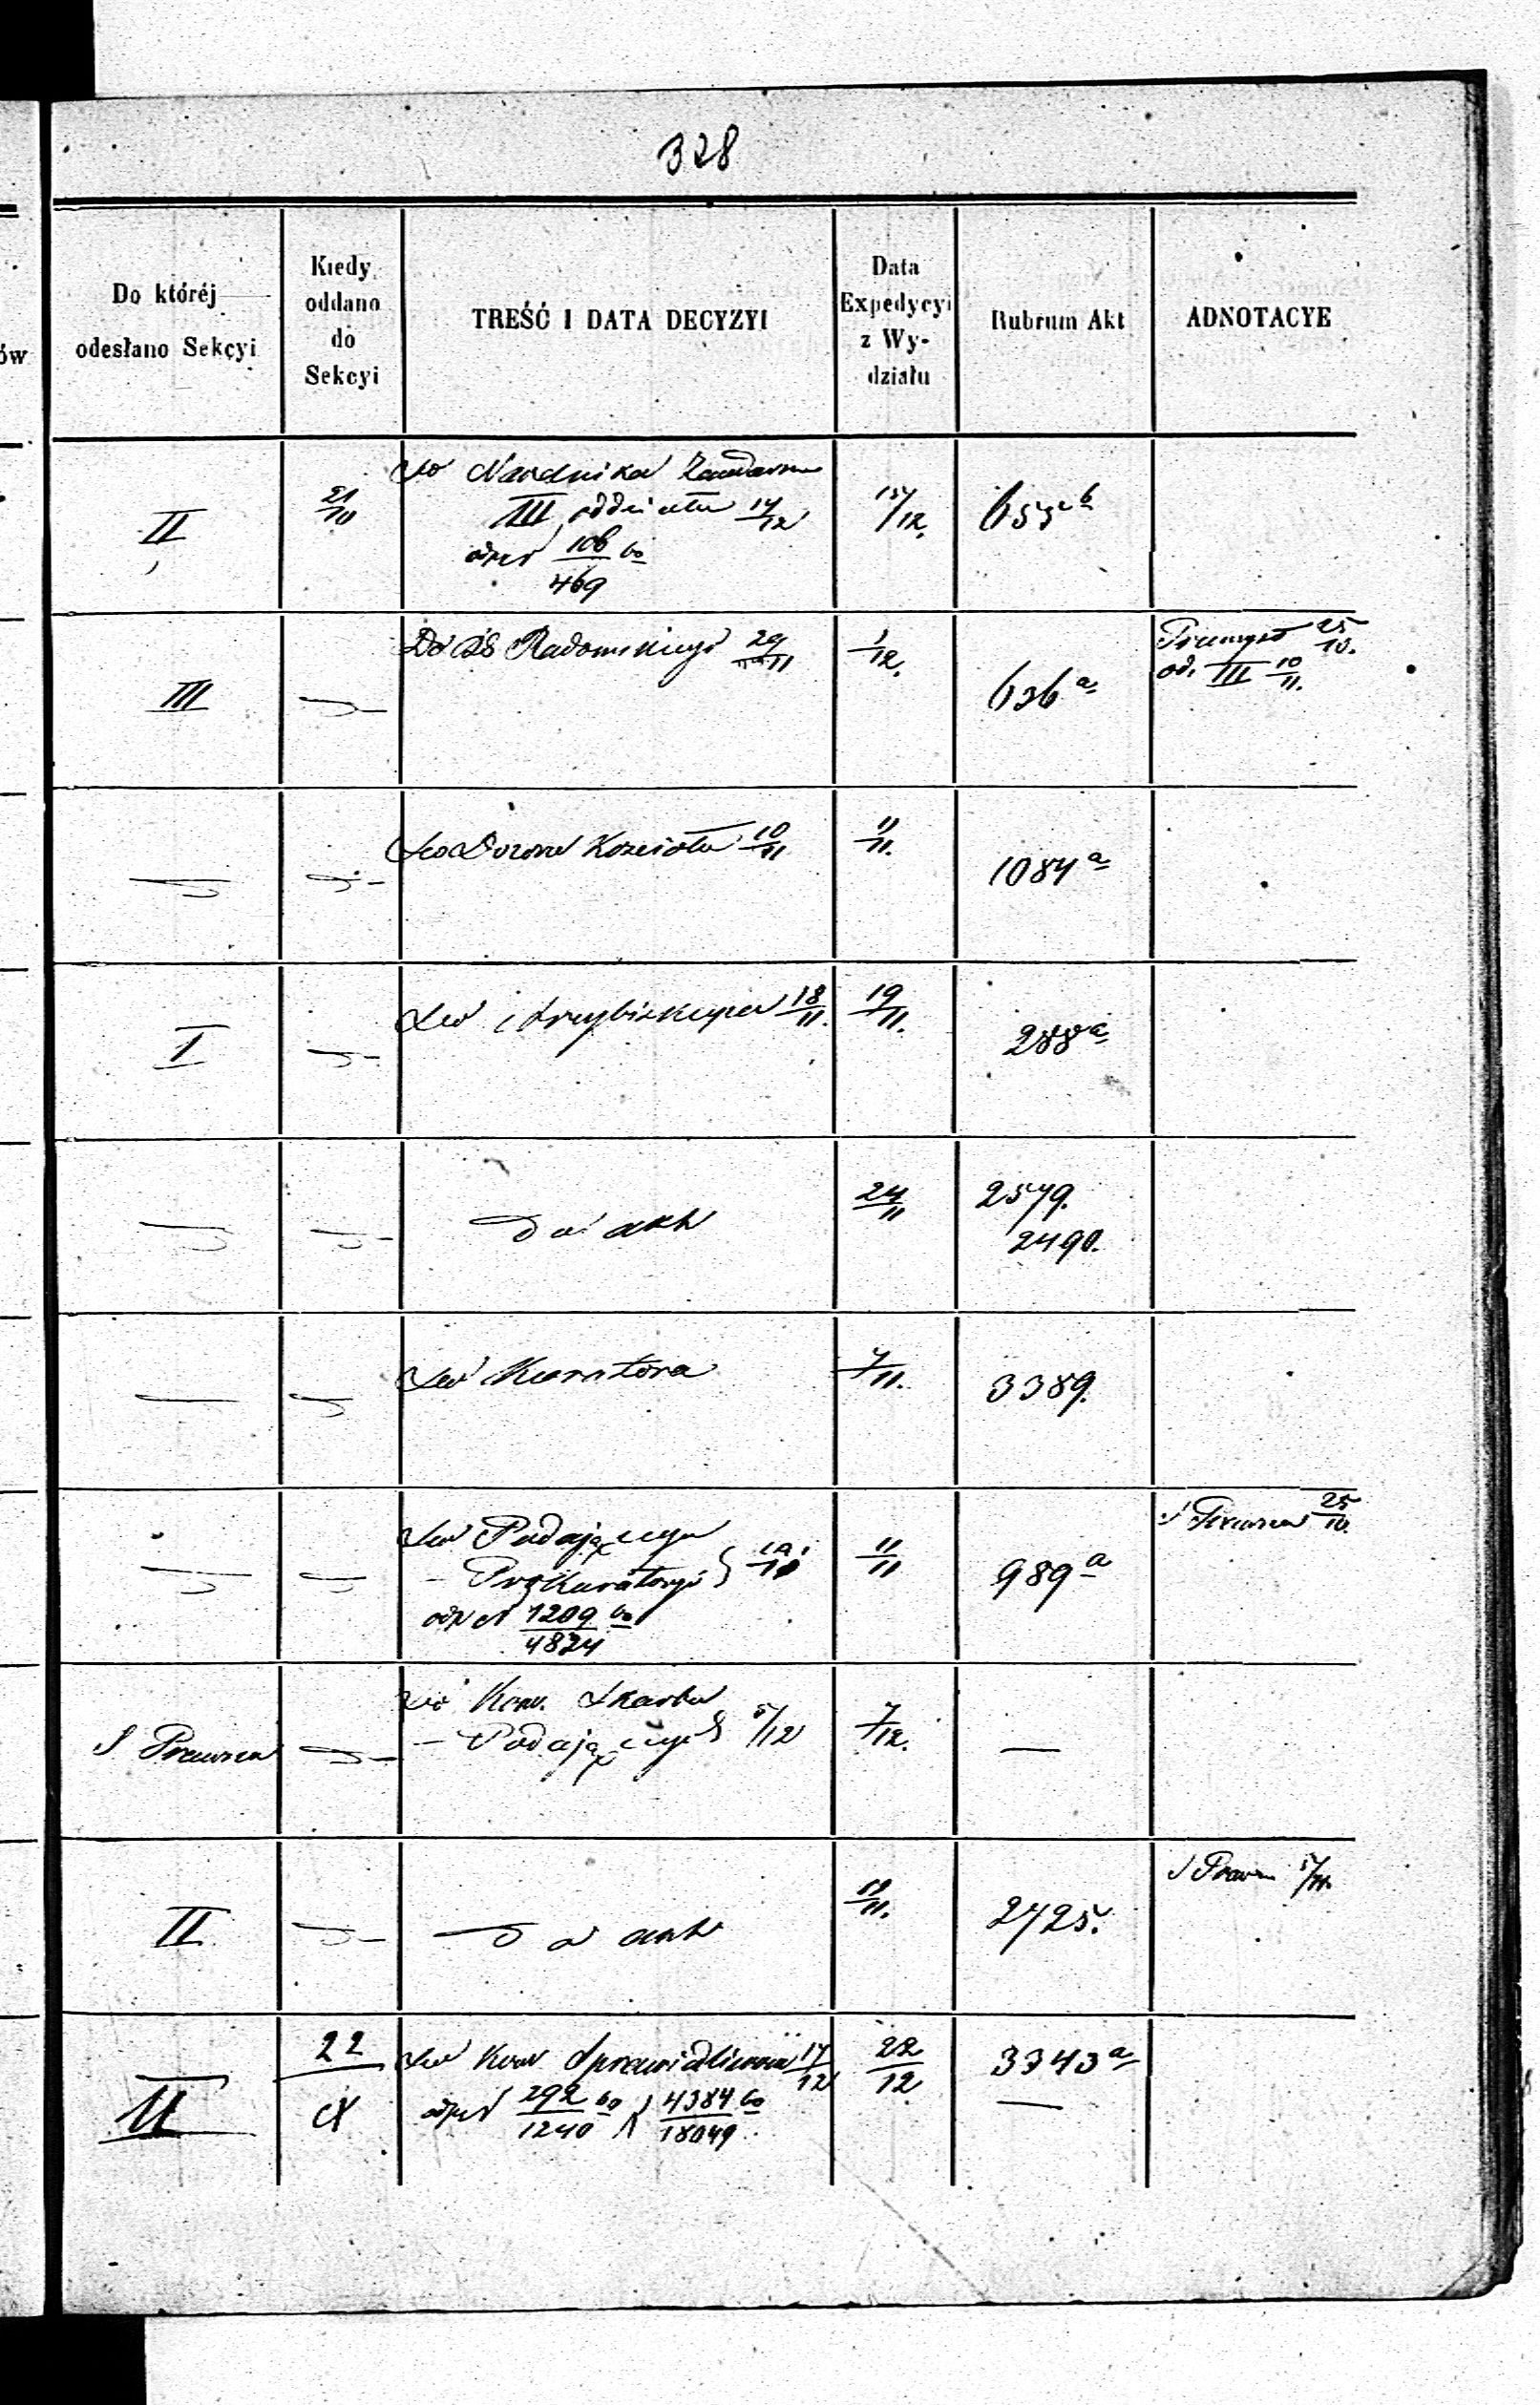 328
Do któréj odesłano Sekcyi
Kiedy oddano do Sekcyi
TREŚĆ I DATA DECYZYI
Data Expedycyi z Wydziału
Rubrum Akt
ADNOTACYE
ów
II
21/10
Do Naczelnika
III oddziału 14/12
106
469
15/12.
653 b
III
Do Radomskiego 29/11
1/12.
636 a
25/10.
od. III 10/11.
Do Dozoru Kościoła 10/11
11/11.
1084 a
I
Do Arcybiskupa 18/11.
19/11.
288 a
Do akt
24/11
2579.
2490.
Do Kuratora
7/11.
3389.
Do Podającego
- Prokuratoryi
1209
4824
11/11
989 a
S Prawna 25/10.
S Prawna
Do Kom. Skarbu
- Podającego 5/12
7/12.
—
II
Do akt
2425.
S Prawn
II
22
Do Kom Sprawiedliwości 17/12
292
1240
4384
18049
22/12
3343 a
—